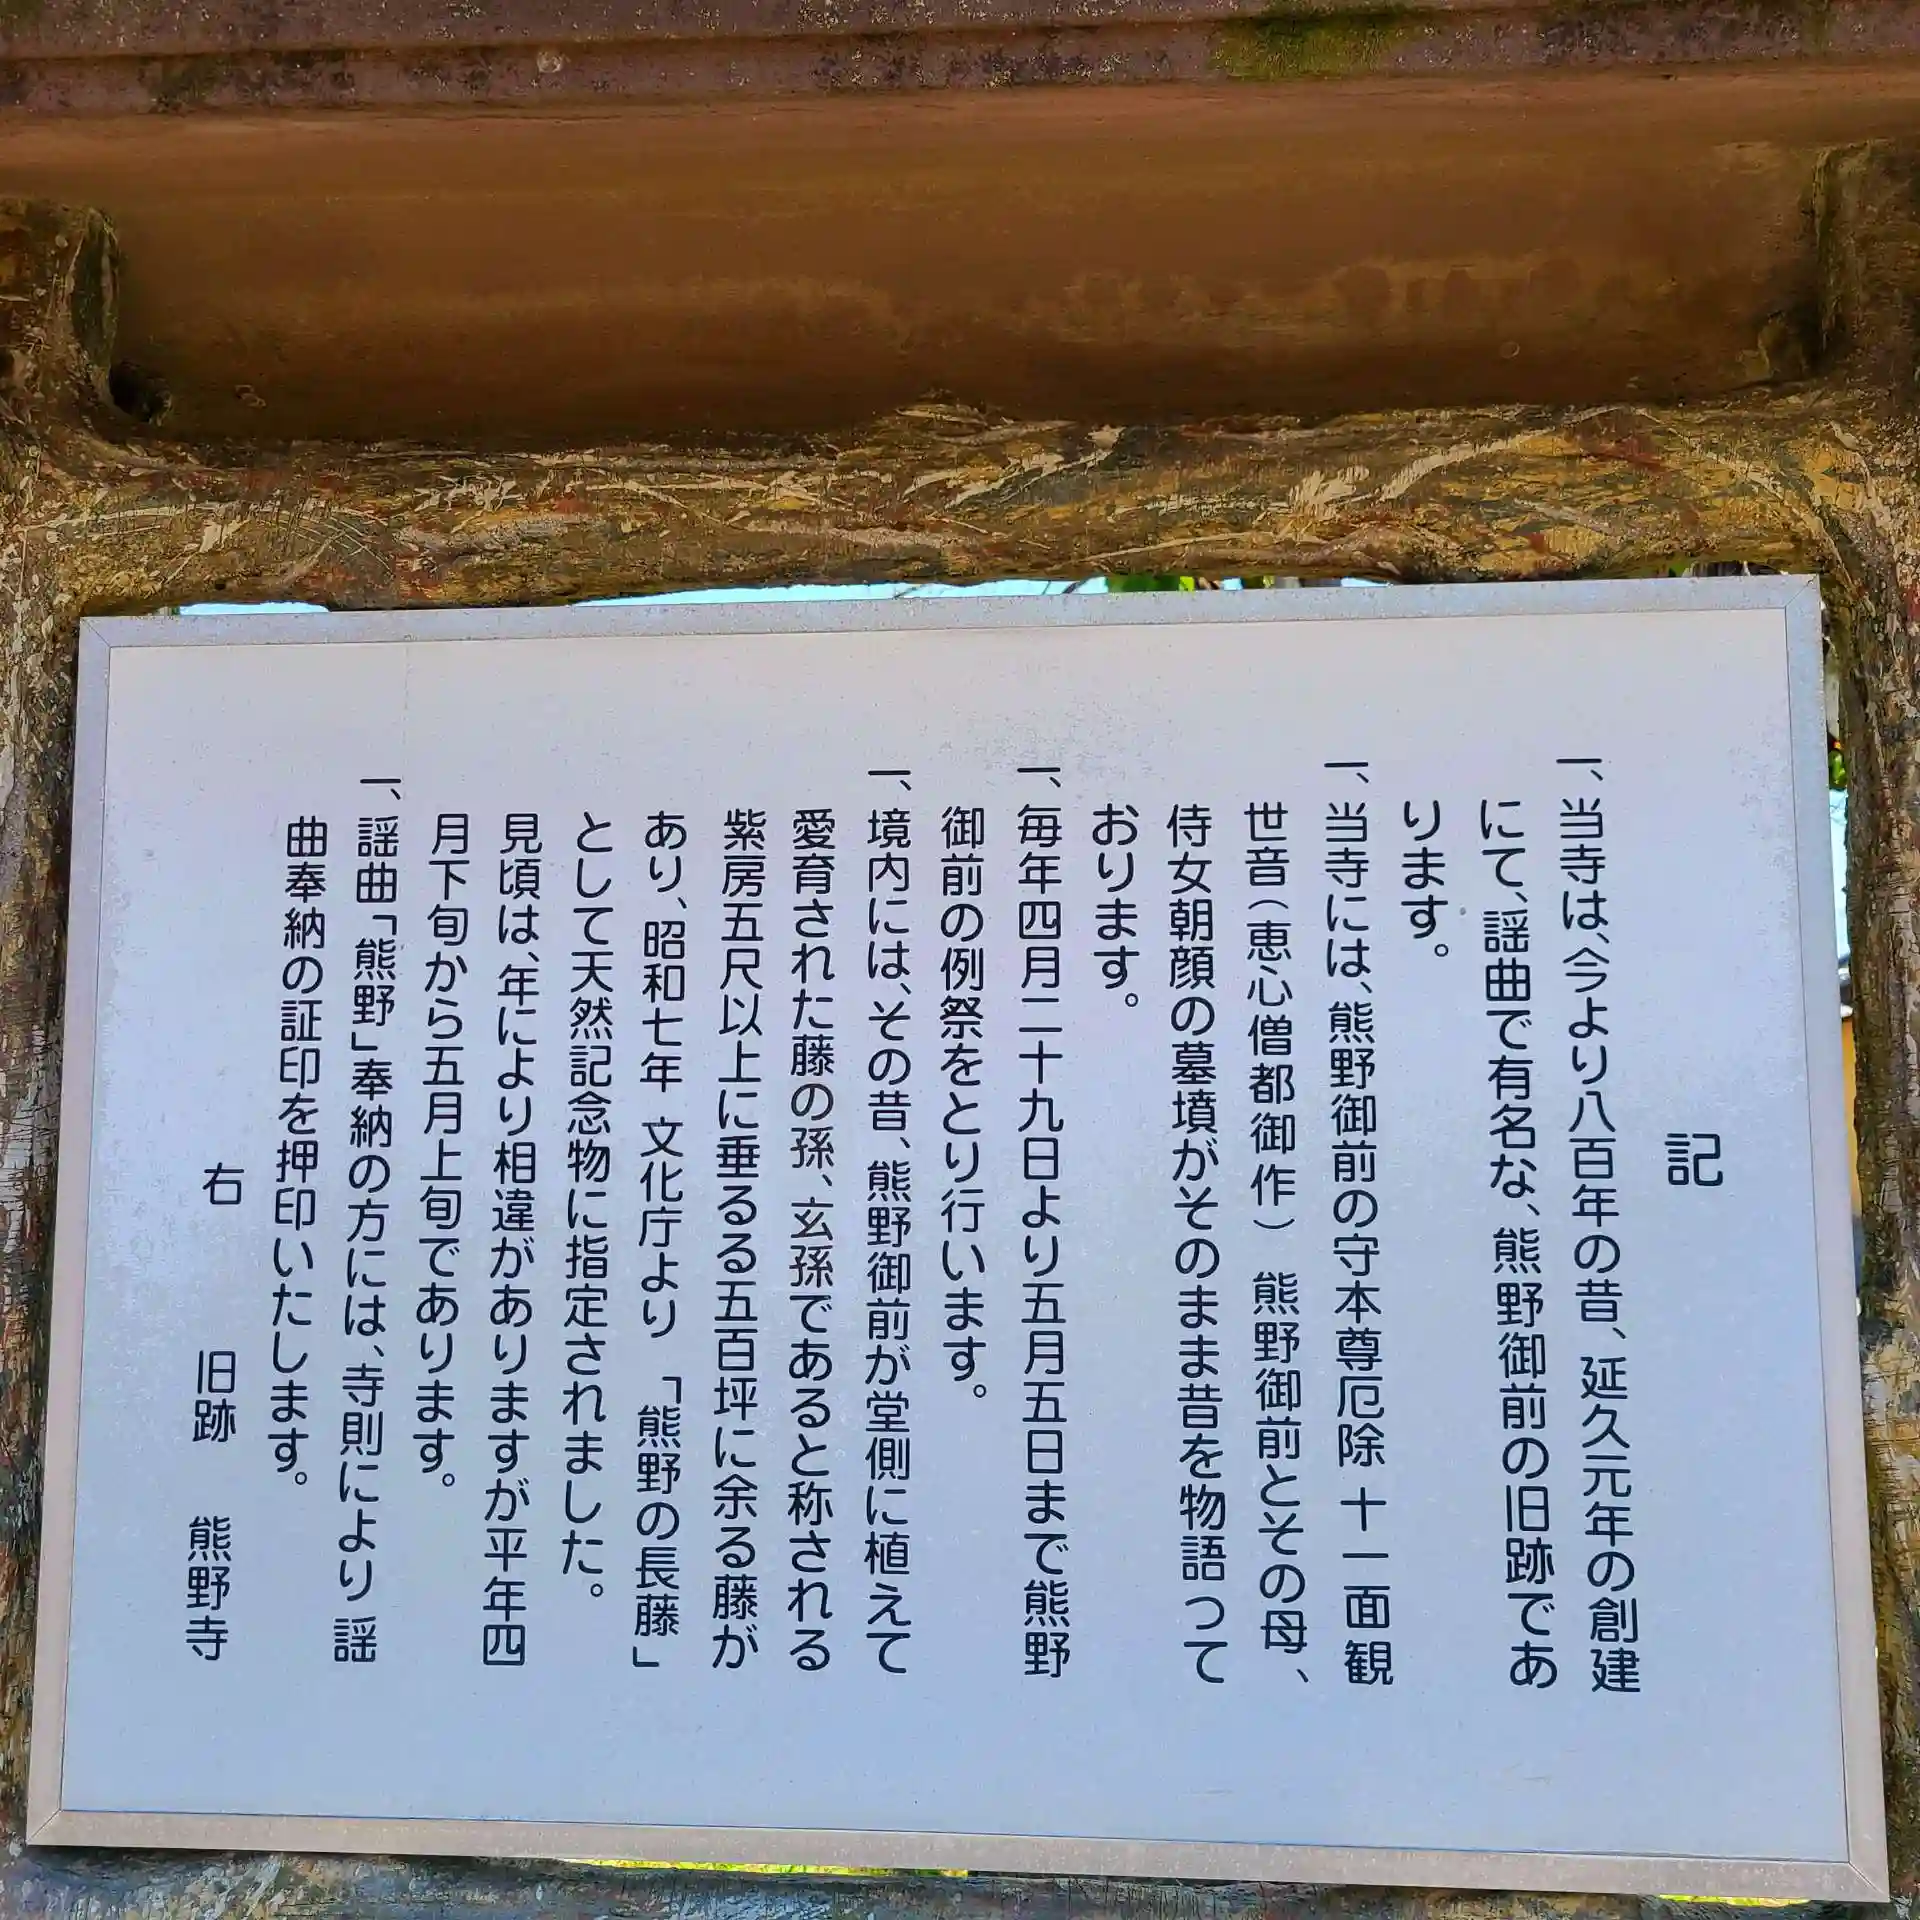 記
一、当寺は、今より八百年の昔、延久元年の創建
にて、謡曲で有名な、熊野御前の旧跡であ
ります。
一、当寺には、熊野御前の守本尊厄除 十一面観
世音(恵心僧都御作) 熊野御前とその母、
侍女朝顔の墓墳がそのまま昔を物語って
おります。
一、毎年四月二十九日より五月五日まで熊野
御前の例祭をとり行います。
一、境内には、その昔、熊野御前が堂側に植えて
愛育された藤の孫、玄孫であると称される
紫房五尺以上に垂るる五百坪に余る藤が
あり、昭和七年 文化庁より 「熊野の長藤」
として天然記念物に指定されました。
見頃は、年により相違がありますが平年四
月下旬から五月上旬であります。
一、謡曲「熊野」奉納の方には、寺則により 謡
曲奉納の証印を押印いたします。
右 旧跡 熊野寺